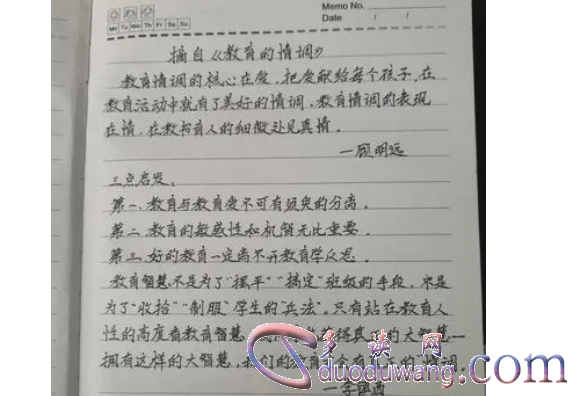 Memo No.
Mo Tu We Th Fr Sa Su
Date / /
摘自《教育的情调》
教育情调的核心在爱,把爱献给每个孩子,在
教育活动中就有了美好的情调,教育情调的表现
在情,在教书育人的细微处见真情。
—顾明远
三点启发、
第一、教育与教育爱不可有须臾的分离。
第二、教育的敏感性和机智无比重要。
第三、好的教育一定离不开教育学反思。
教育智慧不是为了"摆平""搞定"班级的手段,不是
为了"收拾""制服"学生的"兵法",只有站在教育人
性的高度看教育智慧,得真的大智慧—
拥有这样的大智慧,我们的教育会有的"情调
—李
多读网
duoduwang.com